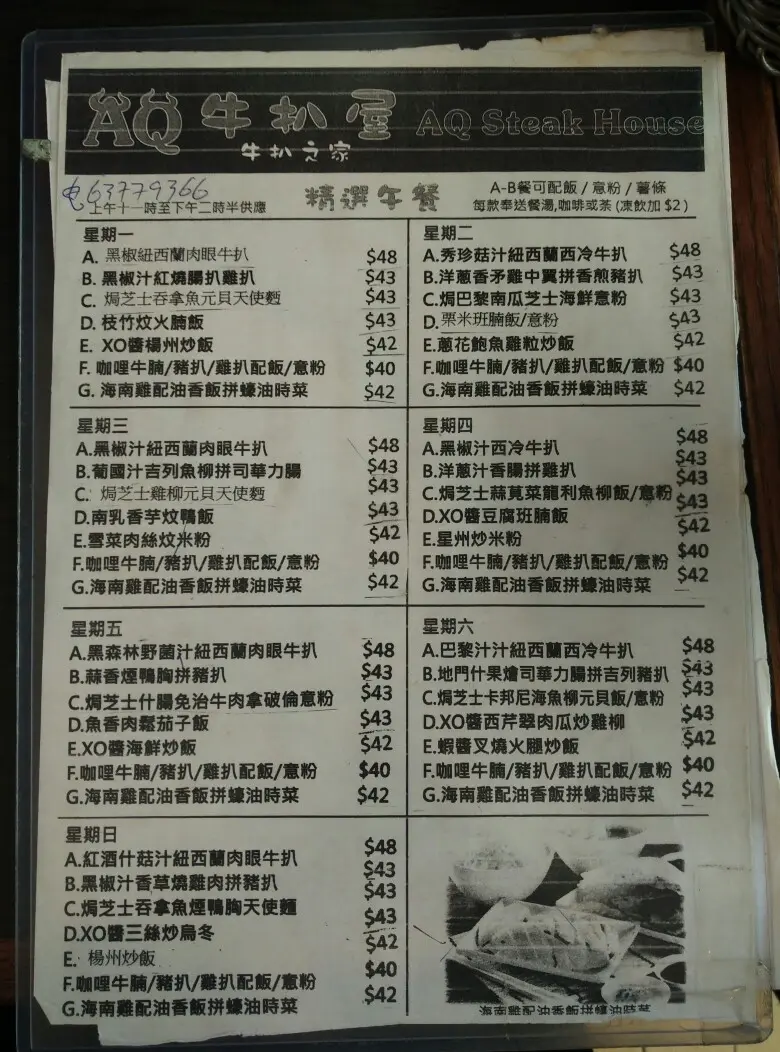 AQ 牛扒屋 AQ Steak House
牛扒之家
63779366
上午十一時至下午二時半供應
精選午餐
A-B餐可配飯 / 意粉 / 薯條
每款奉送餐湯,咖啡或茶 (凍飲加 $2 )
星期一
A. 黑椒紐西蘭肉眼牛扒 $48
B. 黑椒汁紅燒腸扒雞扒 $43
C. 焗芝士吞拿魚元貝天使麵 $43
D. 枝竹炆火腩飯 $43
E. XO醬楊州炒飯 $42
F. 咖哩牛腩/豬扒/雞扒配飯/意粉 $40
G. 海南雞配油香飯拼蠔油時菜 $42
星期二
A.秀珍菇汁紐西蘭西冷牛扒 $48
B.洋蔥香茅雞中翼拼香煎豬扒 $43
C.焗巴黎南瓜芝士海鮮意粉 $43
D.粟米班腩飯/意粉 $43
E.蔥花鮑魚雞粒炒飯 $42
F.咖哩牛腩/豬扒/雞扒配飯/意粉 $40
G.海南雞配油香飯拼蠔油時菜 $42
星期三
A.黑椒汁紐西蘭肉眼牛扒 $48
B.葡國汁吉列魚柳拼司華力腸 $43
C. 焗芝士雞柳元貝天使麵 $43
D.南乳香芋炆鴨飯 $43
E.雪菜肉絲炆米粉 $42
F.咖哩牛腩/豬扒/雞扒配飯/意粉 $40
G.海南雞配油香飯拼蠔油時菜 $42
星期四
A.黑椒汁西冷牛扒 $48
B.洋蔥汁香腸拼雞扒 $43
C.焗芝士蒜莧菜龍利魚柳飯/意粉 $43
D.XO醬豆腐班腩飯 $43
E.星州炒米粉 $42
F.咖哩牛腩/豬扒/雞扒配飯/意粉 $40
G.海南雞配油香飯拼蠔油時菜 $42
星期五
A.黑森林野菌汁紐西蘭肉眼牛扒 $48
B.蒜香煙鴨胸拼豬扒 $43
C.焗芝士什腸免治牛肉拿破倫意粉 $43
D.魚香肉鬆茄子飯 $43
E.XO醬海鮮炒飯 $42
F.咖哩牛腩/豬扒/雞扒配飯/意粉 $40
G.海南雞配油香飯拼蠔油時菜 $42
星期六
A.巴黎汁汁紐西蘭西冷牛扒 $48
B.地門什果燴司華力腸拼吉列豬扒 $43
C.焗芝士卡邦尼海魚柳元貝飯/意粉 $43
D.XO醬西芹翠肉瓜炒雞柳 $43
E.蝦醬叉燒火腿炒飯 $42
F.咖哩牛腩/豬扒/雞扒配飯/意粉 $40
G.海南雞配油香飯拼蠔油時菜 $42
星期日
A.紅酒什菇汁紐西蘭肉眼牛扒 $48
B.黑椒汁香草燒雞肉拼豬扒 $43
C.焗芝士吞拿魚煙鴨胸天使麵 $43
D.XO醬三絲炒烏冬 $43
E. 楊州炒飯 $42
F.咖哩牛腩/豬扒/雞扒配飯/意粉 $40
G.海南雞配油香飯拼蠔油時菜 $42
海南雞配油香飯拼蠔油時菜